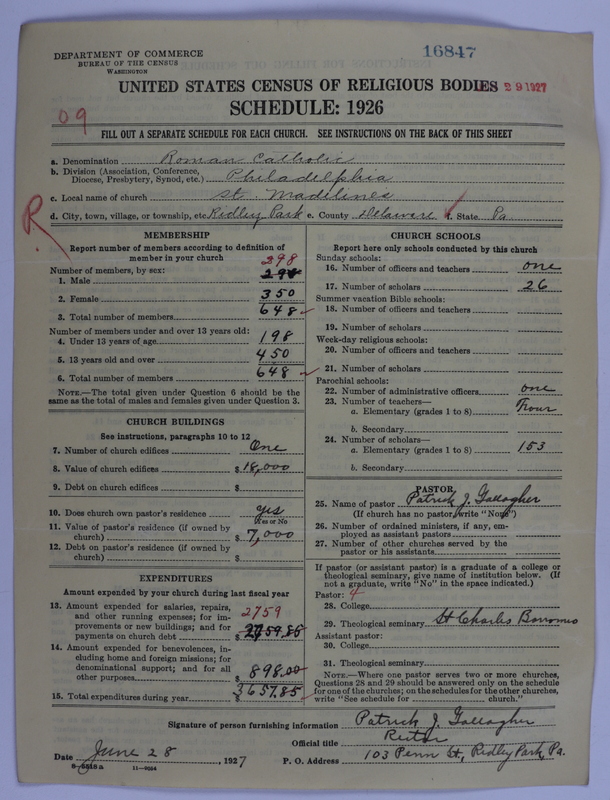 16847
DEPARTMENT OF COMMERCE
BUREAU OF THE CENSUS
WASHINGTON
UNITED STATES CENSUS OF RELIGIOUS BODIES
29 1927
SCHEDULE: 1926
09
FILL OUT A SEPARATE SCHEDULE FOR EACH CHURCH. SEE INSTRUCTIONS ON THE BACK OF THIS SHEET
a. Denomination Roman Catholic
b. Division (Association, Conference,
Diocese, Presbytery, Synod, etc.) Philadelphia
c. Local name of church St. Madelines
d. City, town, village, or township, etc. Ridley Park e. County Delaware f. State Pa
R
MEMBERSHIP
Report number of members according to definition of
member in your church 298
Number of members, by sex:
1. Male 298
2. Female 350
3. Total number of members 648
Number of members under and over 13 years old:
4. Under 13 years of age 198
5. 13 years old and over 450
6. Total number of members 648
NOTE.—The total given under Question 6 should be
same as the total of males and females given under Question 3.
CHURCH BUILDINGS
See instructions, paragraphs 10 to 12
7. Number of church edifices One
8. Value of church edifices $18,000
9. Debt on church edifices $
10. Does church own pastor's residence yes
Yes or No
11. Value of pastor's residence (if owned by
church) $7,000
12. Debt on pastor's residence (if owned by
church) $
EXPENDITURES
Amount expended by your church during last fiscal year
13. Amount expended for salaries, repairs,
and other running expenses; for im-
provements or new buildings; and for
payments on church debt $2759.85
2759
14. Amount expended for benevolences, in-
cluding home and foreign missions; for
denominational support; and for all
other purposes 898.00
15. Total expenditures during year $3657.85
CHURCH SCHOOLS
Report here only schools conducted by this church
Sunday schools:
16. Number of officers and teachers one
17. Number of scholars 26
Summer vacation Bible schools:
18. Number of officers and teachers
19. Number of scholars
Week-day religious schools:
20. Number of officers and teachers
21. Number of scholars
Parochial schools:
22. Number of administrative officers one
23. Number of teachers—
a. Elementary (grades 1 to 8) Four
b. Secondary
24. Number of scholars—
a. Elementary (grades 1 to 8) 153
b. Secondary
PASTOR
25. Name of pastor Patrick J. Gallagher
(If church has no pastor, write "None")
26. Number of ordained ministers, if any, em-
ployed as assistant pastors
27. Number of other churches served by the
pastor or his assistants
If pastor (or assistant pastor) is a graduate of a college or
theological seminary, give name of institution below. (If
not a graduate, write "No" in the space indicated.)
Pastor: 4
28. College
29. Theological seminary St Charles Borromeo
Assistant pastor:
30. College
31. Theological seminary
NOTE.—Where one pastor serves two or more churches,
Questions 28 and 29 should be answered only on the schedule
for one of the churches; on the schedules for the other churches,
write "See schedule for church."
Signature of person furnishing information Patrick J. Gallagher
Official title Rector
Date June 28, 1927 P. O. Address 103 Penn St, Ridley Park, Pa.
11—9054